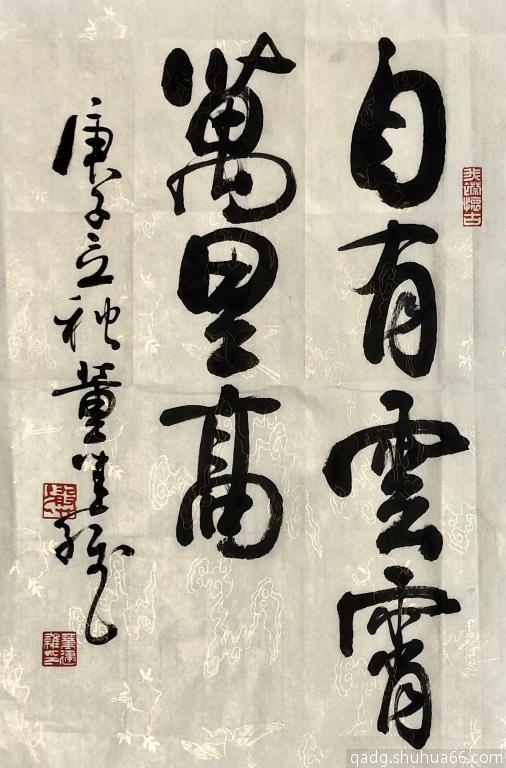 自有雲霄
萬里高
庚子立秋董
qadg.shuhua66.com